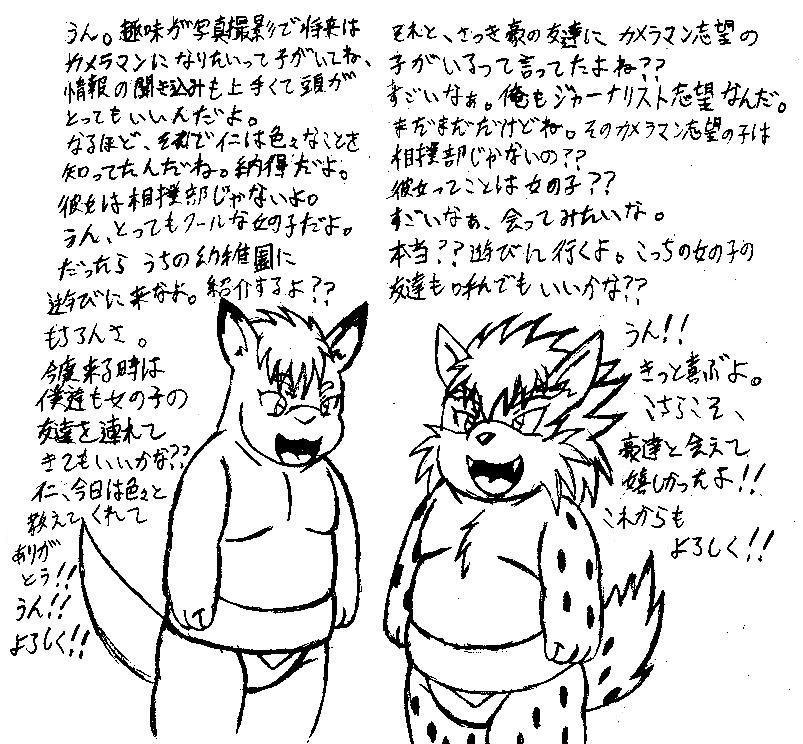 それと、さっき豪の友達に カメラマン志望の
子がいるって言ってたよね??
すごいなぁ。俺もジャーナリスト志望なんだ。
まだまだだけどね。そのカメラマン志望の子は
相撲部じゃないの??
彼女ってことは女の子??
すごいなぁ、会ってみたいな。
本当??遊びに行くよ。こっちの女の子の
友達も呼んでもいいかな??
うん!!
きっと喜ぶよ。
こちらこそ、
豪達と会えて
嬉しかったよ!!
これからも
よろしく!!
うん。趣味が写真撮影で将来は
カメラマンになりたいって子がいてね、
情報の聞き込みも上手くて頭が
とってもいいんだよ。
なるほど、それで仁は色々なことを
知ってたんだね。納得だよ。
彼女は相撲部じゃないよ。
うん、とってもクールな女の子だよ。
だったら うちの幼稚園に
遊びに来なよ。紹介するよ??
もちろんさ。
今度来る時は
僕達も女の子の
友達を連れて
きてもいいかな??
仁、今日は色々と
教えてくれて
ありが
とう!!
うん!!
よろしく!!